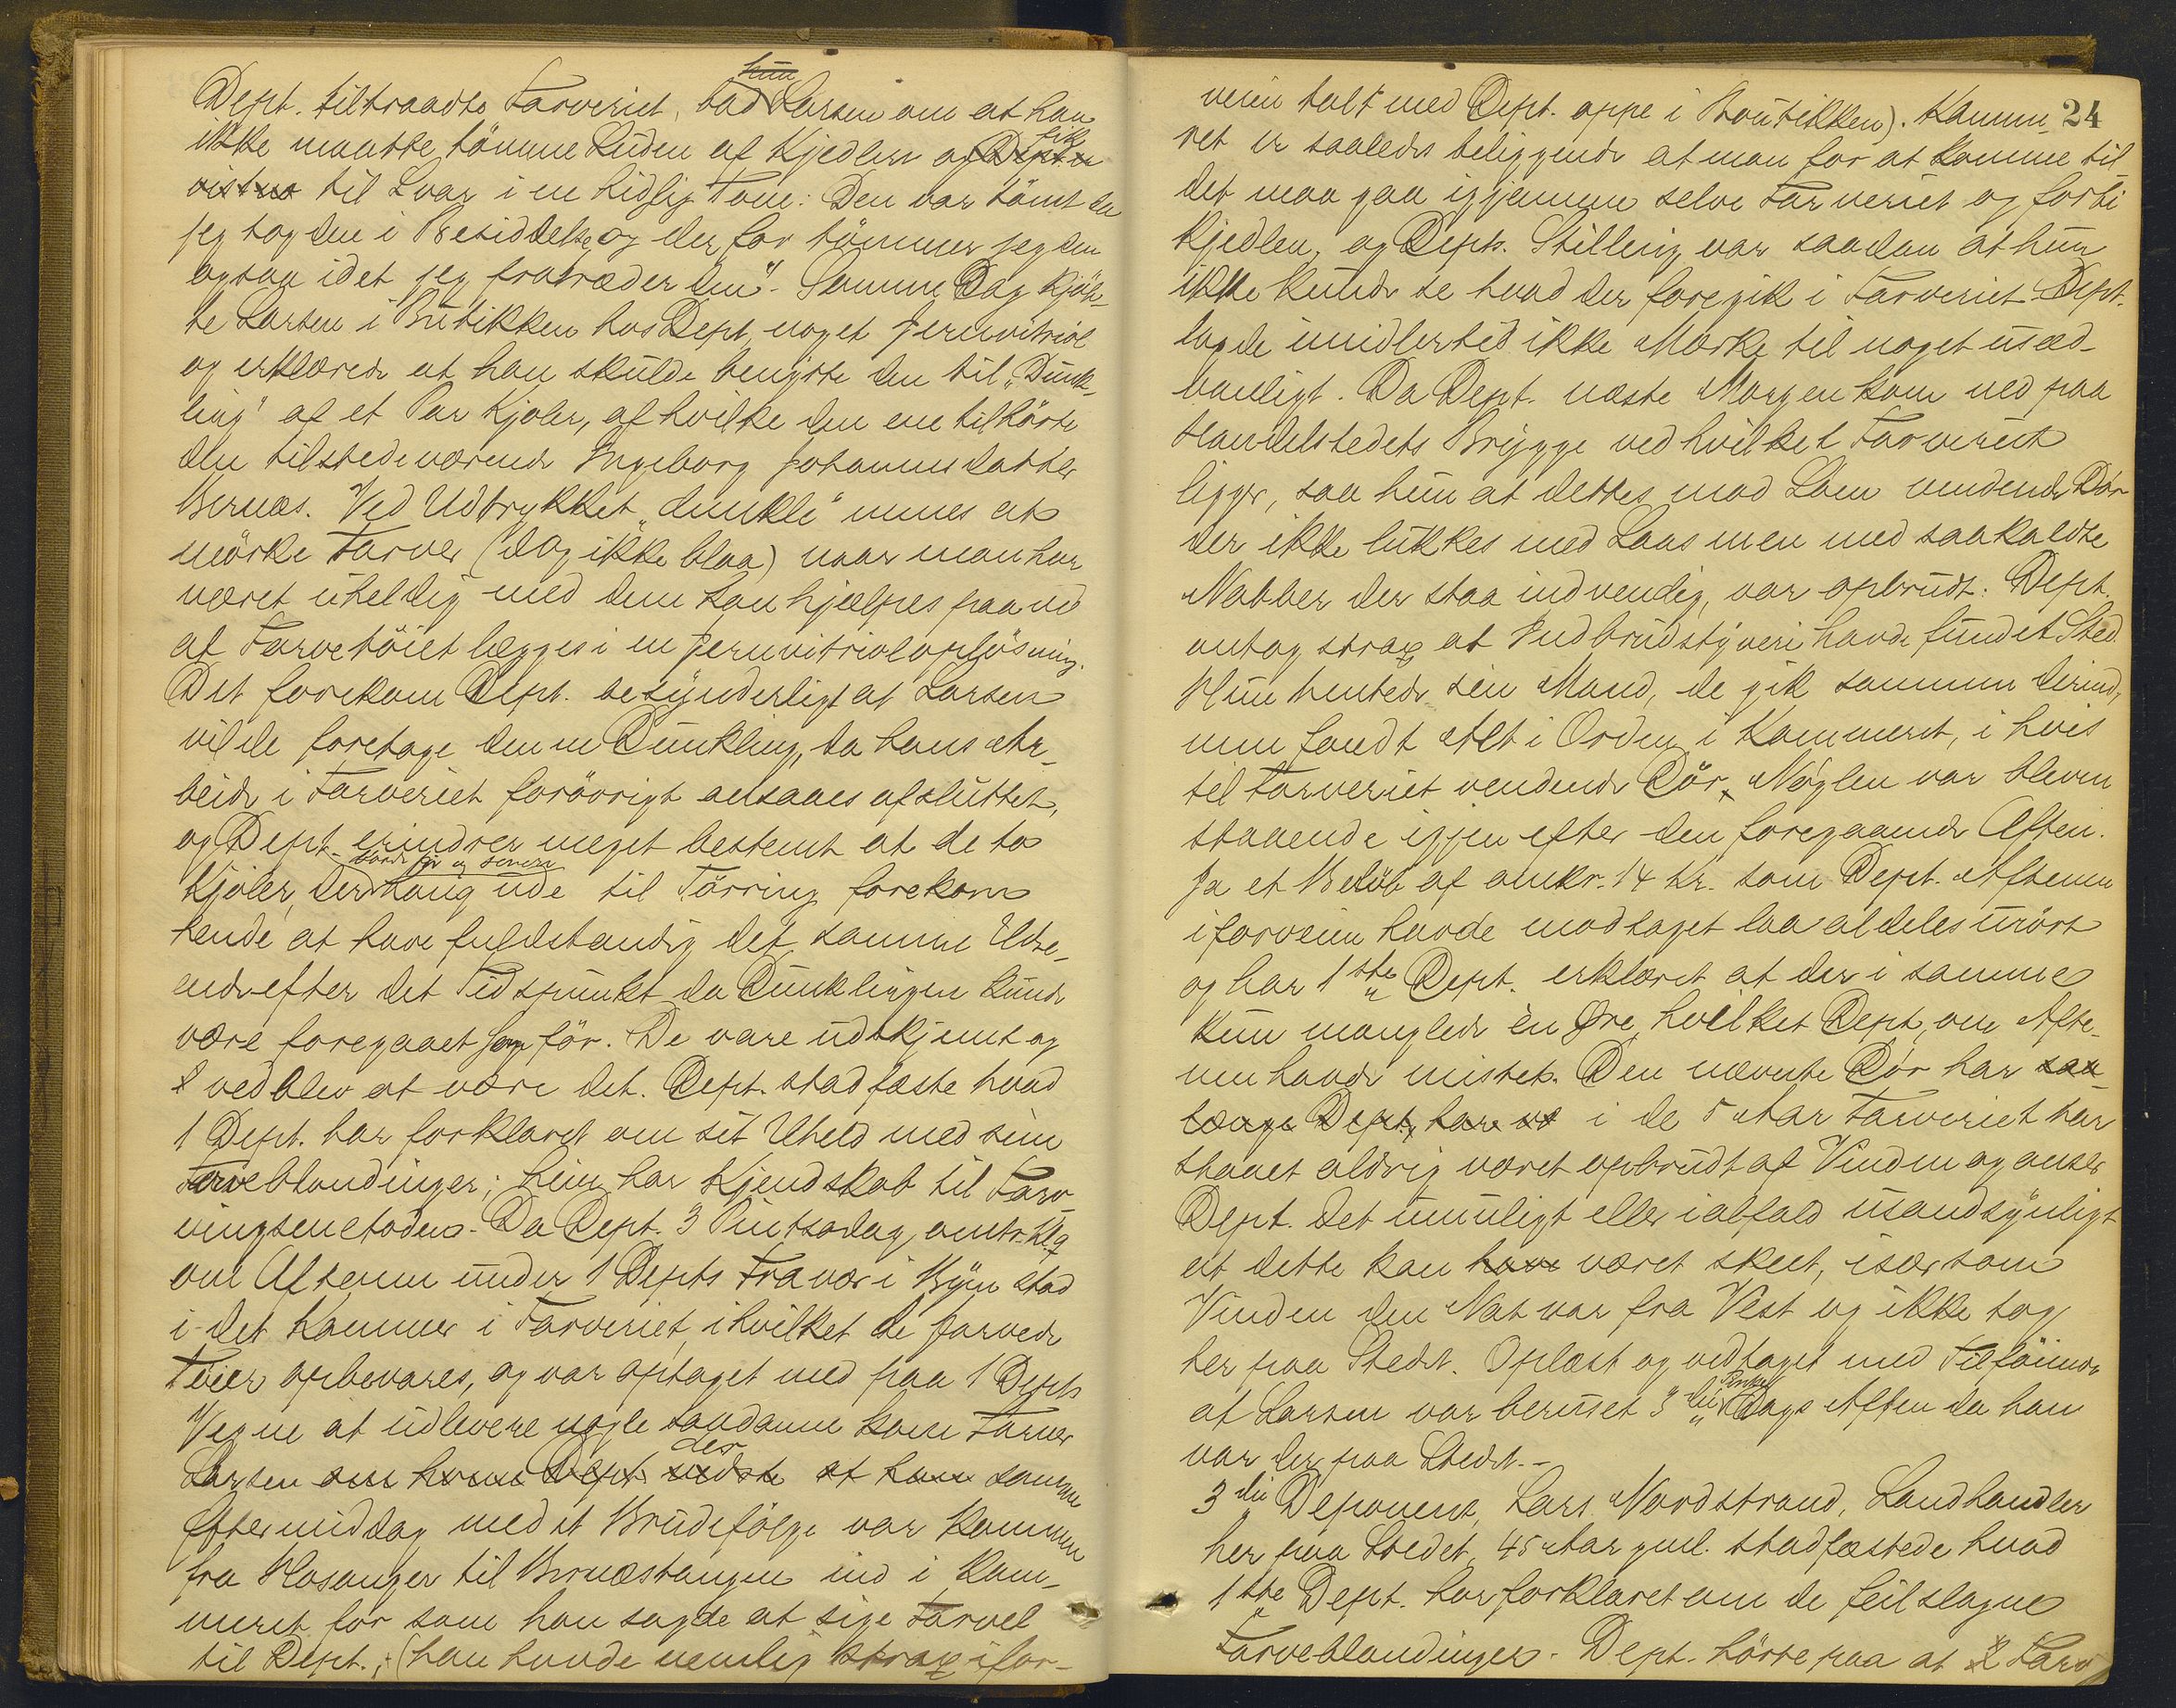 Dept. tiltraadte Farveriet, bad hun Larsen om at han
ikke maatte tömme Kuden af Kjedlen og fik Dept.
til Svar i en hidsig Tone: Den var tömt da
jeg tog den i Besiddelse og derfor tömmer jeg den
ogsaa idet jeg fratræder den". Samme Dag kjöb-
te Larsen i Butikken hos Dept. noget Jernvitriol
og erklærede at han skulde benytte den til "Dunk-
ling" af et Par Kjoler, af hvilke den ene tilhörte
den tilstedeværende Ingeborg Johannesdatter
Bernæs. Ved Udtrykket "dunkle" menes at
mörke Farver (dog ikke blaa) naar man har
været uheldig med dem kan hjælpes paa ved
at Farvetöiet lægges i en Jernvitriolopløsning.
Det forekom Dept. besynderligt at Larsen
vilde foretage denne Dunkling, da hans Ar-
beide i Farveriet forövrigt ansaaes afsluttet,
og Dept. erindrer meget bestemt at de to
Kjoler, der baade för og senere hang ude til Törring forekom
hende at have fuldstændig det samme Udse-
ende efter det Tidspunkt da Dunklingen kunde
være foregaaet som för. De vare udskjemt og
vedblev at være det. Dept. stadfæste hvad
1 Dept. har forklaret om sit Uheld med sine
Farveblandinger; hun har Kjendskab til Farv-
ningsmetoden. Da Dept. 3 Pintsedag, omtr. Kl. 9
om Aftenen under 1 Depts Fravær i Byen stod
i det Kammer i Farveriet, i hvilket de farvede
Töier opbevares, og var optaget med paa 1 Depts
Vegne at udlevere nogle saadanne kom Farver
Larsen om hvem Dept. vidste at han der samme
Eftermiddag med et Brudefölge var kommen
fra Hosanger til Bernæstangen ind i Kam-
meret for som han sagde at sige Farvel
til Dept.; (han havde nemlig strax ifor-
veien talt med Dept. oppe i Boutikken). Kamm- 24
ret er saaledes beliggende at man for at komme til
det maa gaa igjennem selve Farveriet og forbi
Kjedlen, og Depts. Stilling var saadan at hun
ikke kunde se hvad der foregik i Farveriet. Dept.
lagde imidlertid ikke Mærke til noget usæd-
vanligt. Da Dept. næste Morgen kom ned paa
Handelsstedets Brygge ved hvilket Farveriet
ligger, saa hun at dettes mod Söen vendende Dör
der ikke lukkes med Laas men med saakaldte
Nabber der staa indvendig, var opbrudt. Dept.
antog strax at Indbrudstyveri havde fundet Sted.
Hun hentede sin Mand, de gik sammen derind,
men fandt Alt i Orden i Kammeret, i hvis
til Farveriet vendende Dör Nøglen var bleven
staaende igjen efter den foregaaende Aften.
Ja et Beløb af omkr. 14 Kr. som Dept. Aftenen
iforveien havde modtaget laa aldeles urört
og har 1ste Dept. erklæret at der i samme
kun manglede èn Øre, hvilket Dept. om Afte-
nen havde mistet. Den nævnte Dör har saa-
længe Dept. har i de 5 Aar Farveriet har
staaet aldrig været opbrudt af Vinden og anser
Dept. det umuligt eller ialfald usandsynligt
at dette kan have været skeet, især som
Vinden den Nat var fra Vest og ikke tog
her paa Stedet. Oplæst og vedtaget med Tilföiende
at Larsen var beruset 3die Pintse Dags Aften da han
var der paa Stedet.-
3die Deponent, Lars Nordstrand, Landhandler
her paa Stedet, 45 Aar gml. stadfæstede hvad
1ste Dept. har forklaret om de feilslagne
Farveblandinger. Dept. hörte paa at Farv